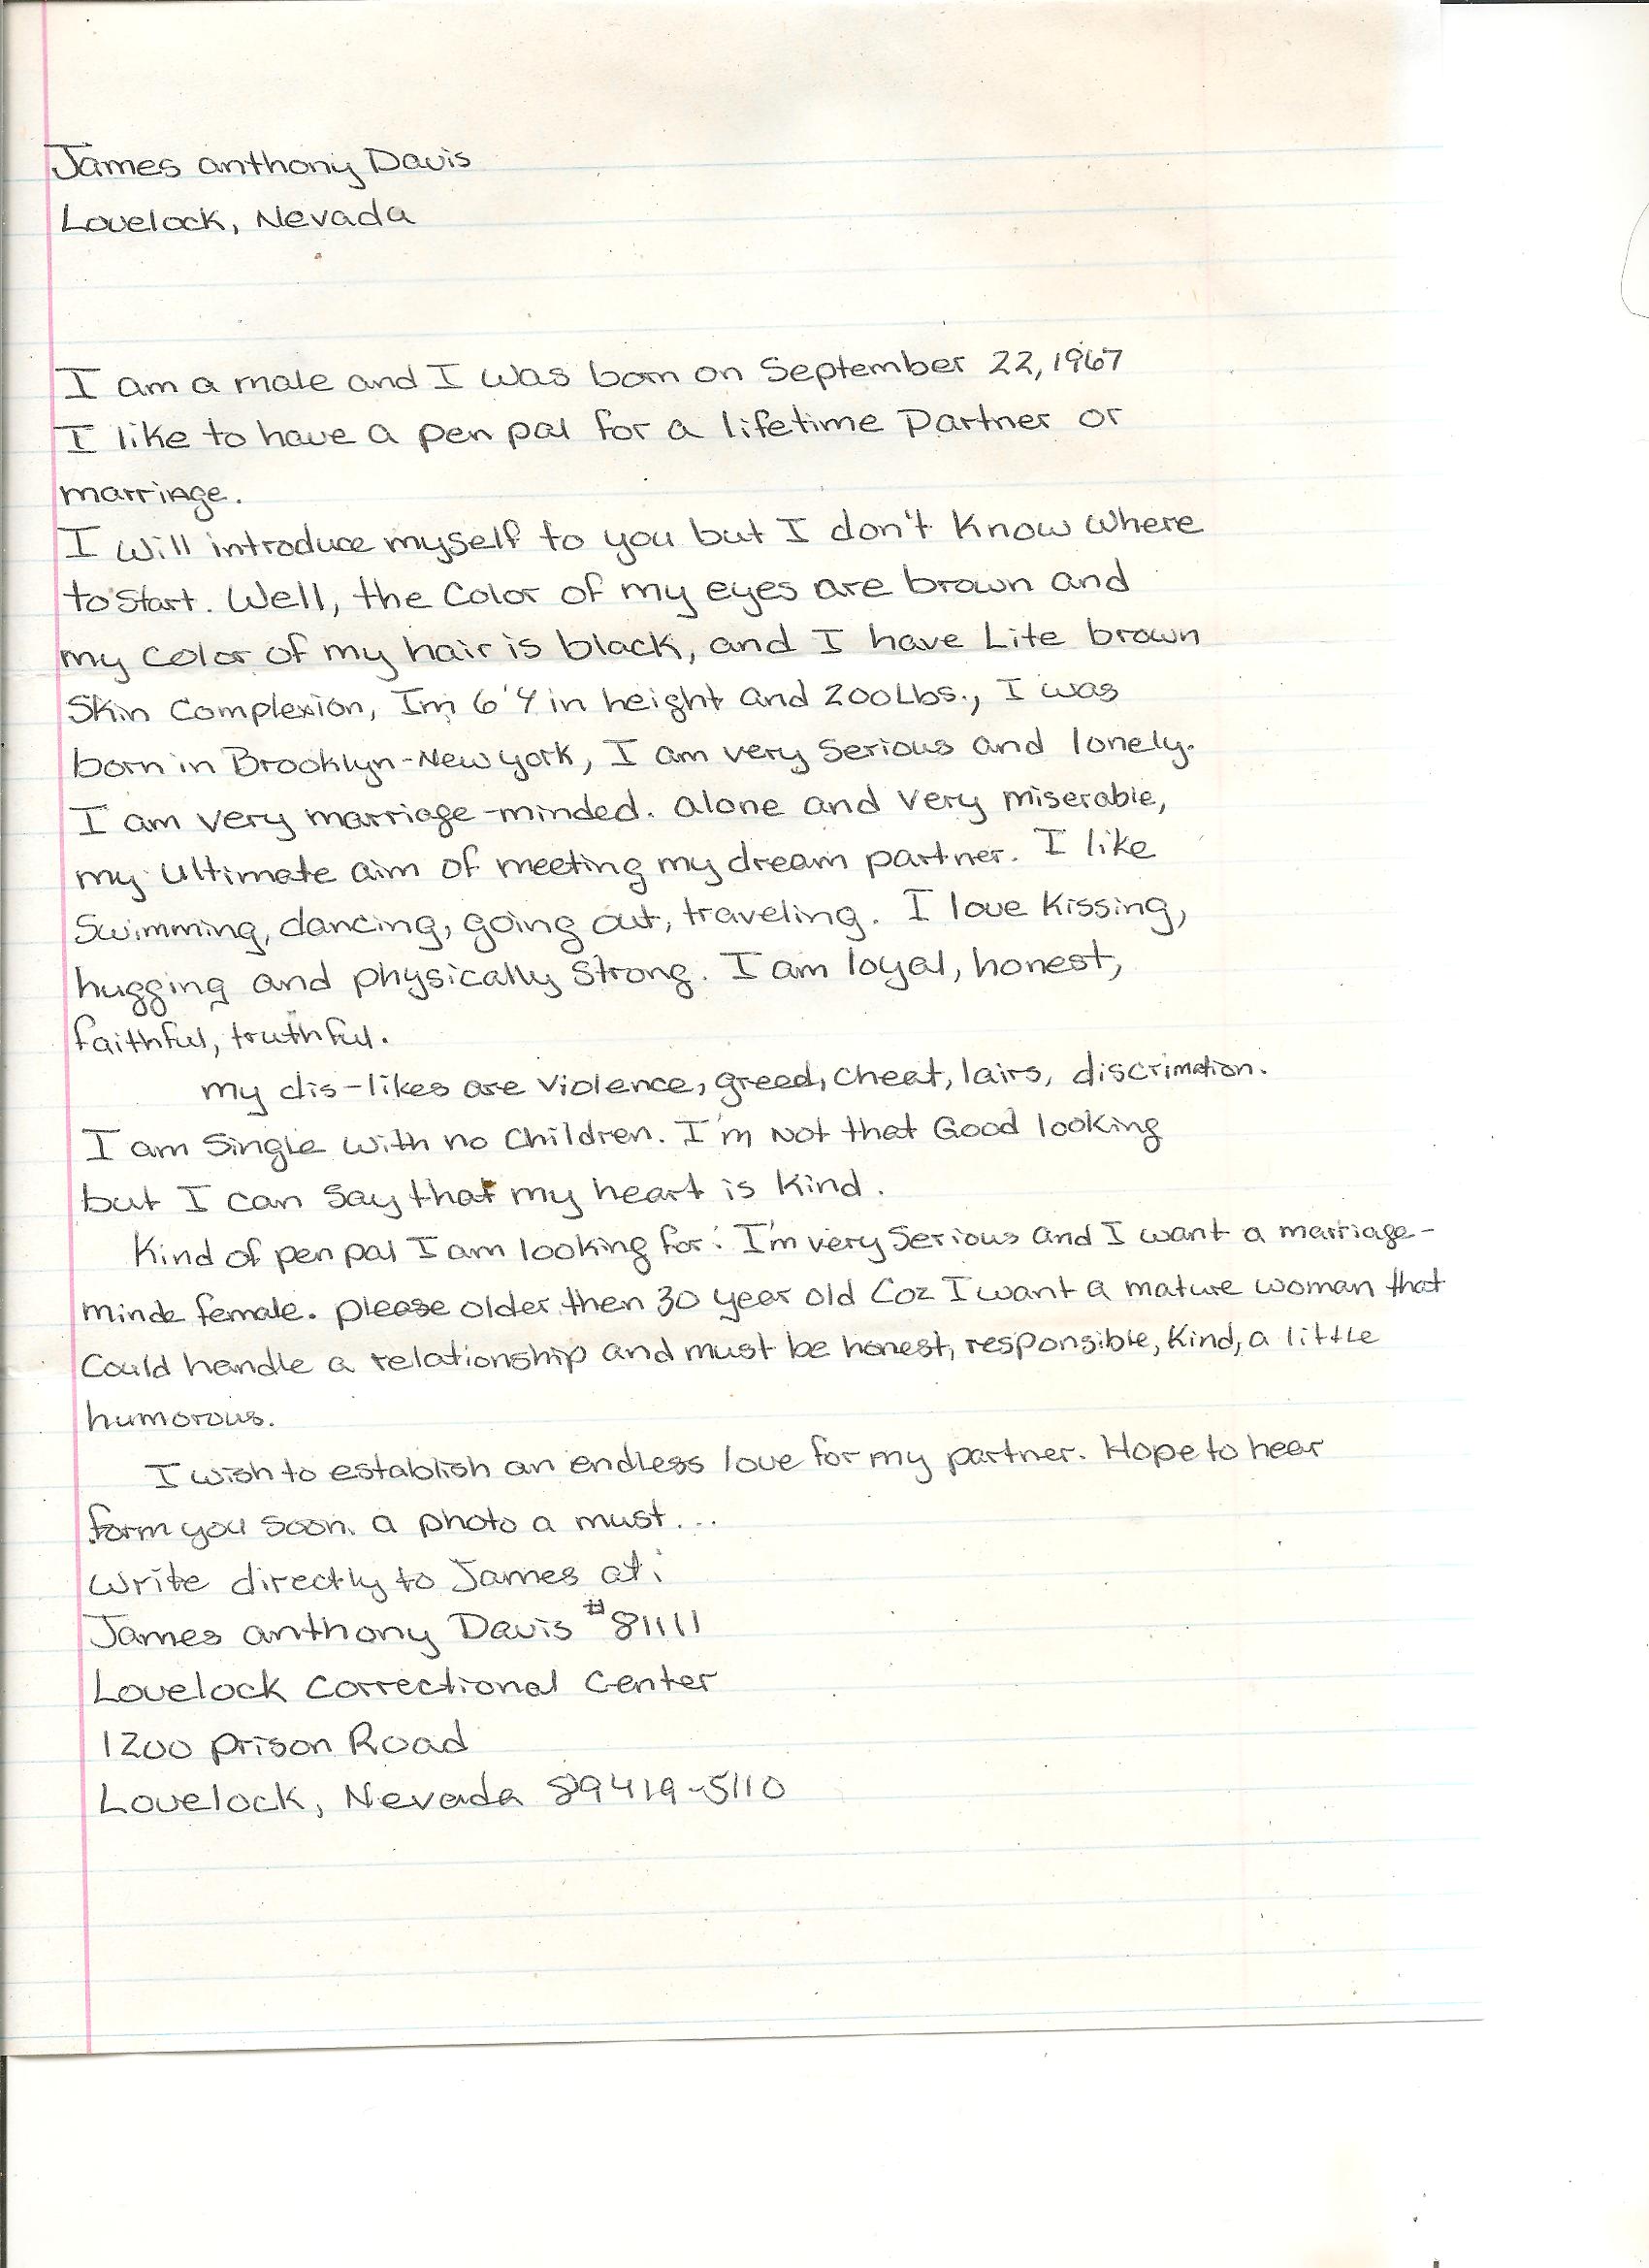 James anthony Davis
Lovelock, Nevada
I am a male and I was born on September 22, 1967
I like to have a pen pal for a lifetime Partner or
marriage.
I will introduce myself to you but I don't know where
to start. Well, the Color of my eyes are brown and
my Color of my hair is black, and I have Lite brown
Skin Complexion, Im 6'4 in height and 200Lbs., I was
born in Brooklyn-New york, I am very serious and lonely.
I am very marriage-minded. alone and very miserable,
my ultimate aim of meeting my dream partner. I like
Swimming, dancing, going out, traveling. I love kissing,
hugging and physically strong. I am loyal, honest,
faithful, truthful.
my dis-likes are violence, greed, cheat, lairs, discrimation.
I am Single with no Children. I'm Not that Good looking
but I can say that my heart is kind.
Kind of pen pal I am looking for: I'm very serious and I want a marriage-
minde female. please older then 30 year old Coz I want a mature woman that
Could handle a relationship and must be honest, responsible, kind, a little
humorous.
I wish to establish an endless love for my partner. Hope to hear
form you soon. a photo a must...
Write directly to James at:
James anthony Davis #81111
Lovelock Correctional Center
1200 prison Road
Lovelock, Nevada 89419-5110